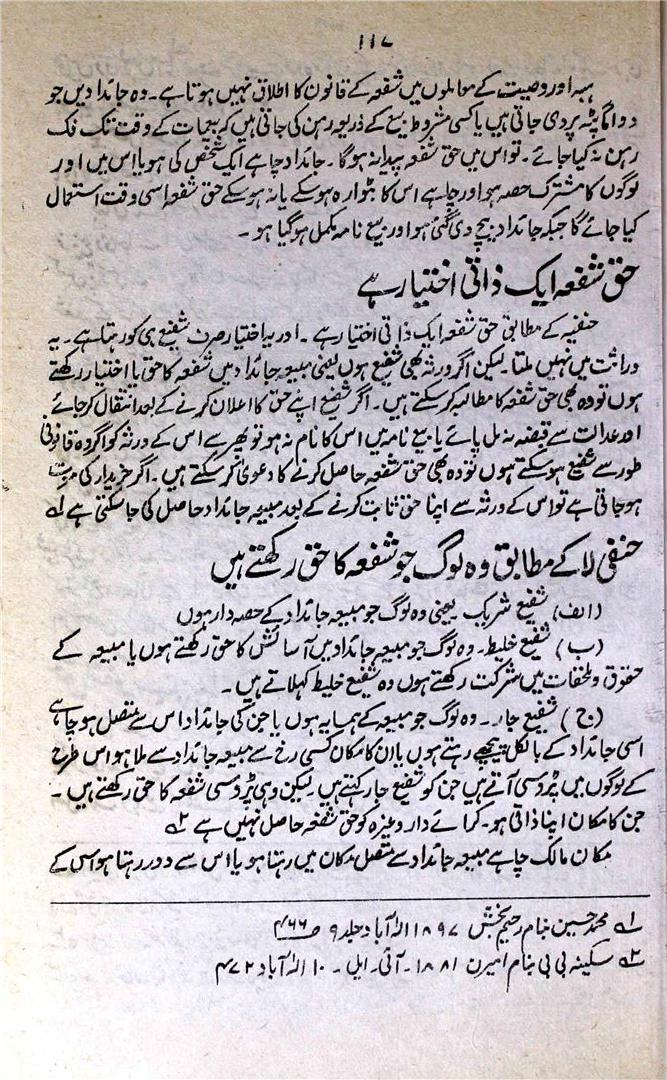 ۱۱۷
ہبہ اور وصیت کے معاملوں میں شفعہ کے قانون کا اطلاق نہیں ہوتا ہے۔ وہ جائدادیں جو
دوامًا پٹہ پر دی جاتی ہیں یا کسی مشروط بیع کے ذریعہ رہن کی جاتی ہیں کہ بیعات کے وقت تک فک
رہن نہ کیا جائے۔ تو اس میں حق شفعہ پیدا نہ ہوگا۔ جائداد چاہے ایک شخص کی ہو یا اس میں اور
لوگوں کا مشترک حصہ ہو اور چاہے اس کا بٹوارہ ہو سکے یا نہ ہو سکے حق شفعہ اسی وقت استعمال
کیا جائے گا جبکہ جائداد بیچ دی گئی ہو اور بیع نامہ مکمل ہو گیا ہو۔
حق شفعہ ایک ذاتی اختیار ہے
حنفیہ کے مطابق حق شفعہ ایک ذاتی اختیار ہے۔ اور یہ اختیار صرف شفیع ہی کو رہتا ہے۔ یہ
وراثت میں نہیں ملتا لیکن اگر ورثہ بھی شفیع ہوں یعنی مبیعہ جائداد میں شفعہ کا حق یا اختیار رکھتے
ہوں تو وہ بھی حق شفعہ کا مطالبہ کر سکتے ہیں۔ اگر شفیع اپنے حق کا اعلان کرنے کے بعد انتقال کر جائے
اور عدالت سے قبضہ نہ مل پائے یا بیع نامہ میں اس کا نام نہ ہو تو پھر سے اس کے ورثہ کو اگر وہ قانونی
طور سے شفیع ہو سکتے ہوں تو وہ بھی حق شفعہ حاصل کرنے کا دعویٰ کر سکتے ہیں۔ اگر خریدار کی موت
ہو جاتی ہے تو اس کے ورثہ سے اپنا حق ثابت کرنے کے بعد مبیعہ جائداد حاصل کی جا سکتی ہے ۱؎
حنفی لا کے مطابق وہ لوگ جو شفعہ کا حق رکھتے ہیں
(الف) شفیع شریک یعنی وہ لوگ جو مبیعہ جائداد کے حصہ دار ہوں
(ب) شفیع خلیط۔ وہ لوگ جو مبیعہ جائداد میں آسائش کا حق رکھتے ہوں یا مبیعہ کے
حقوق و ملحقات میں شرکت رکھتے ہوں وہ شفیع خلیط کہلاتے ہیں۔
(ج) شفیع جار۔ وہ لوگ جو مبیعہ کے ہمسایہ ہوں یا جن کی جائداد اس سے متصل ہو چاہے
اسی جائداد کے بالکل پیچھے رہتے ہوں یا ان کا مکان کسی رخ سے مبیعہ جائداد سے ملا ہو اس طرح
کے لوگوں میں پڑوسی آتے ہیں جن کو شفیع جار کہتے ہیں۔ لیکن وہی پڑوسی شفعہ کا حق رکھتے ہیں۔
جن کا مکان اپنا ذاتی ہو۔ کرائے دار وغیرہ کو حق شفعہ حاصل نہیں ہے ۲؎
مکان مالک چاہے مبیعہ جائداد سے متصل مکان میں رہتا ہو یا اس سے دور رہتا ہو اس کے
۱؎ محمد حسین بنام رحیم بخش ۱۸۹۷ الہٰ آباد جلد ۹ ص۴۶۶
۲؎ سکینہ بی بی بنام امیرن ۱۸۸۱۔ آئی۔ ایل۔ ۱۰ الہٰ آباد ۴۷۲